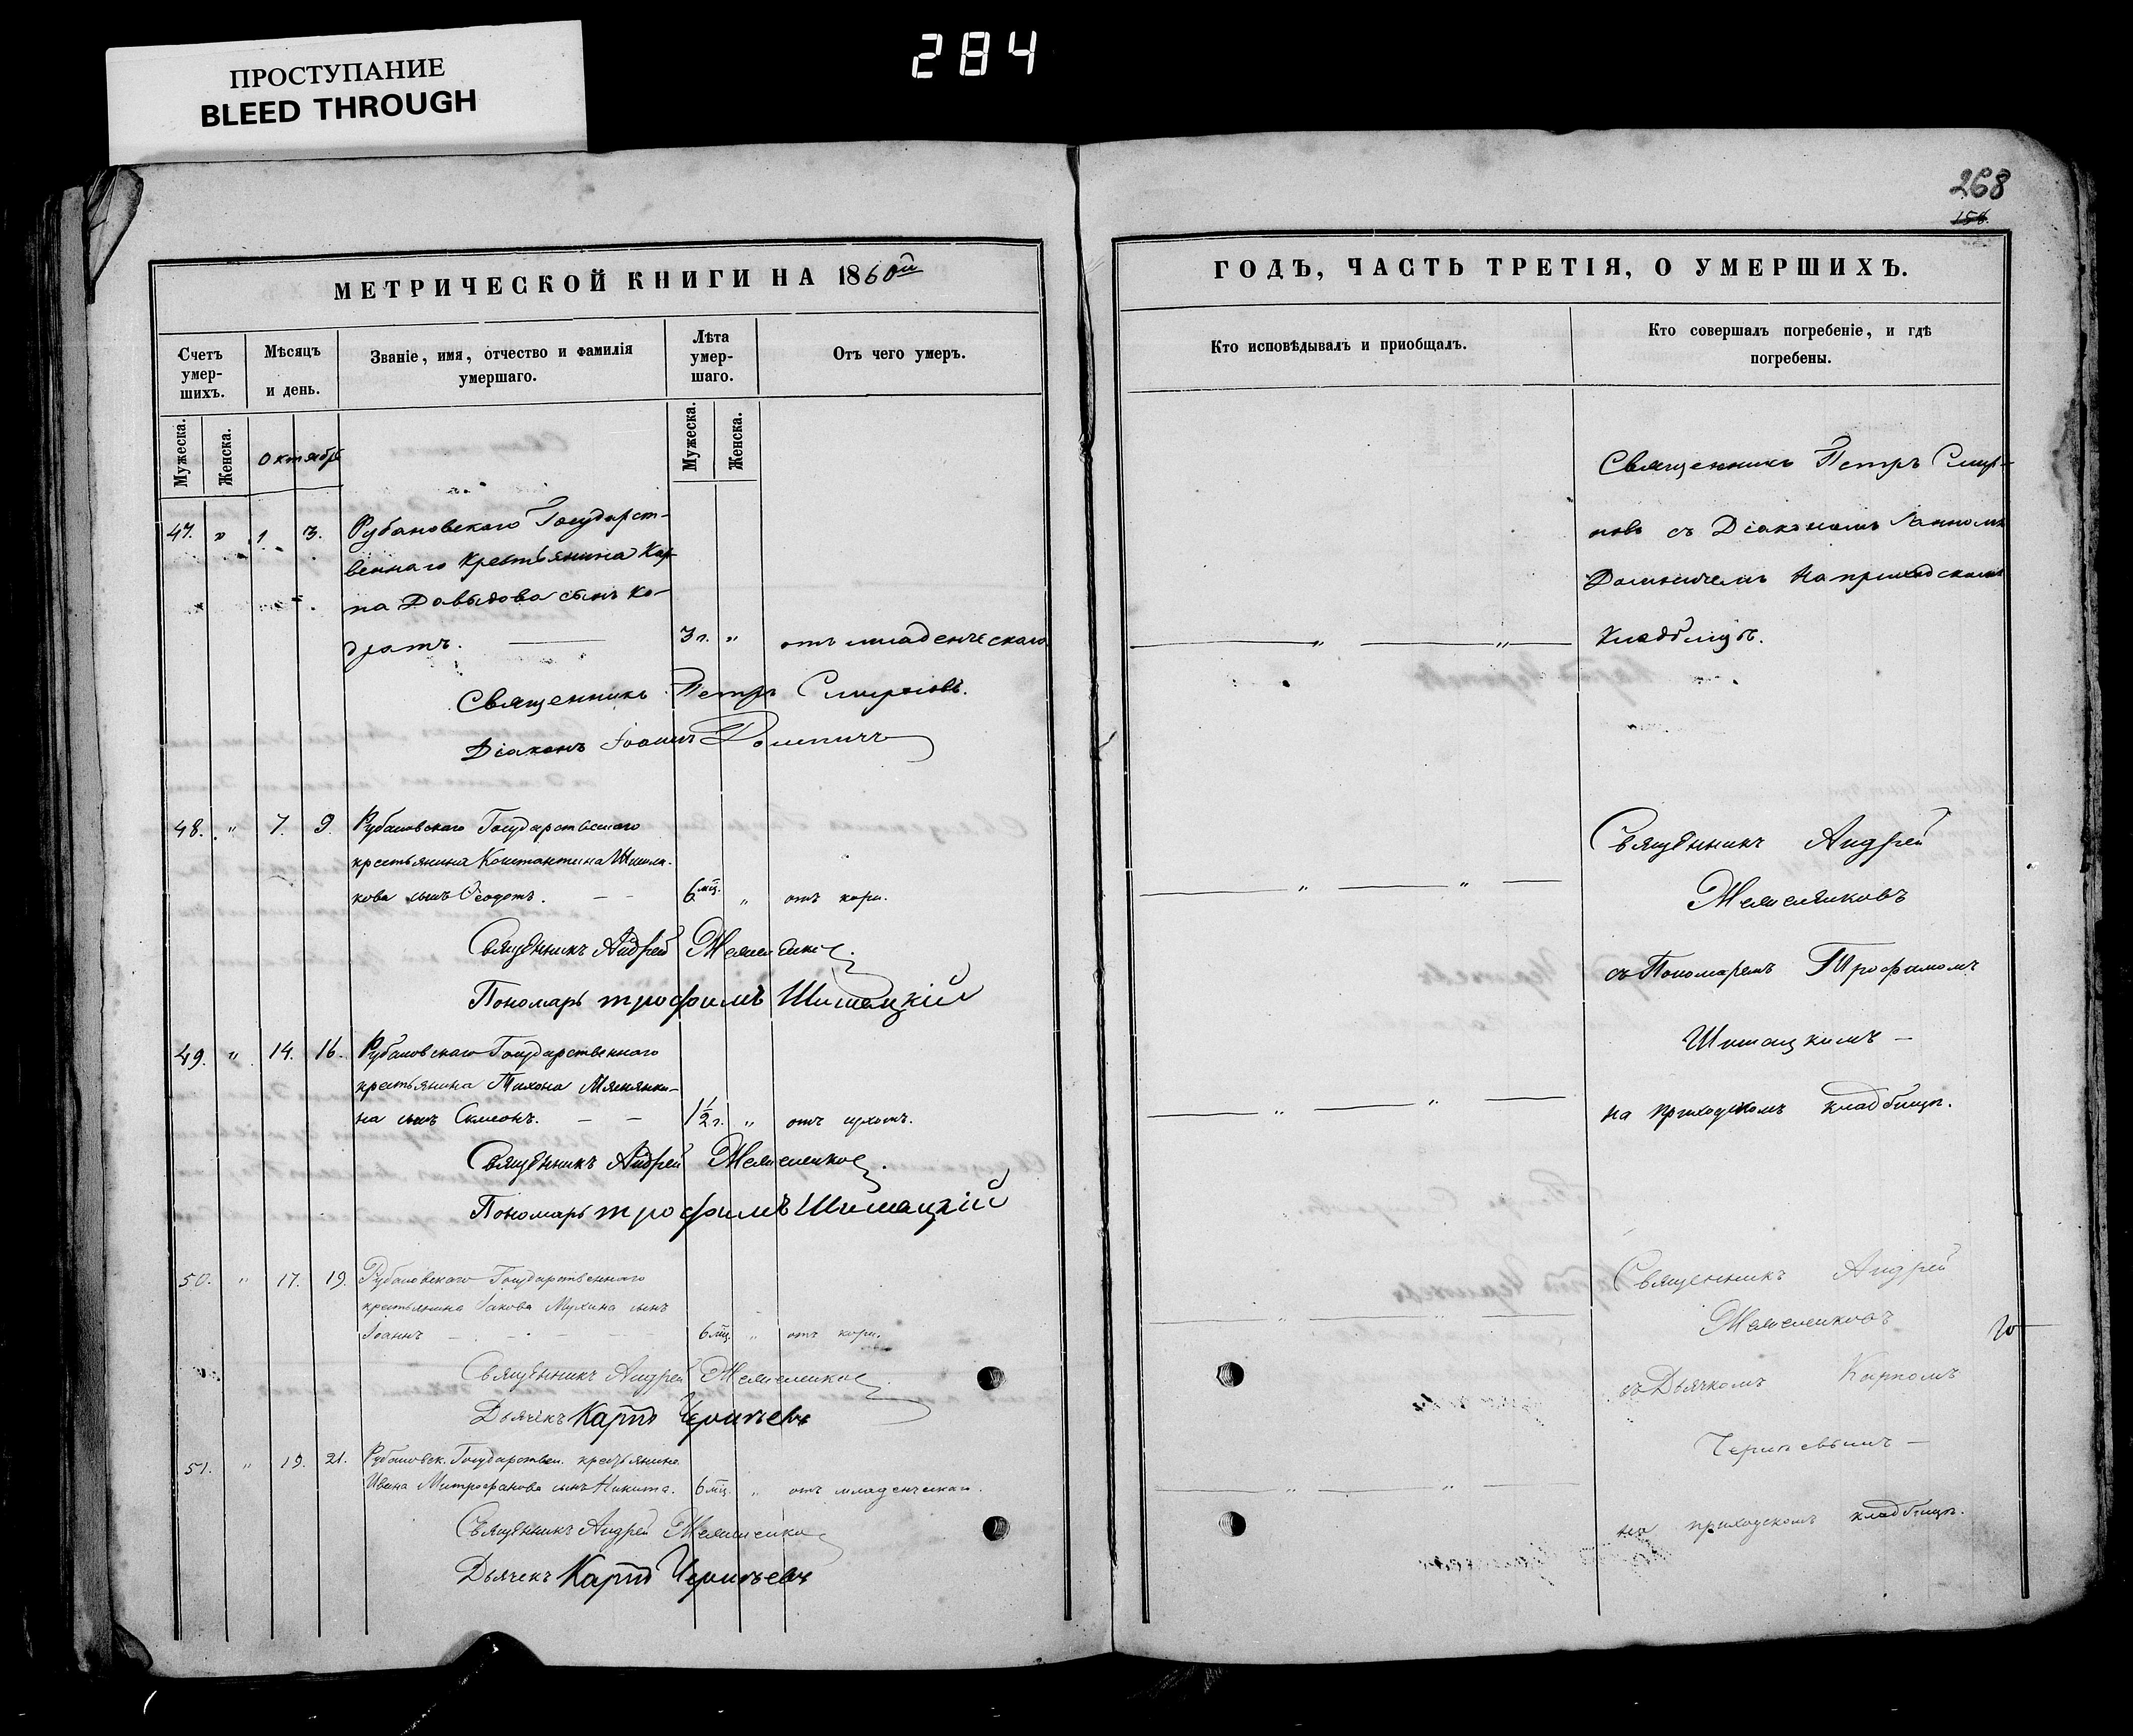 ПРОСТУПАНИЕ
BLEED THROUGH
284
МЕТРИЧЕСКОЙ КНИГИ НА 1860й
Счетъ умер- шихъ.
Мѣсяцъ и день.
Званіе, имя, отчество и фамилія умершаго.
Лѣта умер- шаго.
Отъ чего умеръ.
Мужеска.
Женска.
Октябрь
Мужеска.
Женска.
47. " 1 3. Рубановскаго Государст-
веннаго Крестьянина Кар-
па Давыдова сынъ Ко-
дратъ. 3 г. " отъ младенческаго
Священникъ Петръ Смирновъ.
Діаконъ Іоаннъ
48. " 7. 9. Рубановскаго Государственнаго
крестьянина Константина
кова сынъ Ѳеодотъ. 6 мц. " отъ кори.
Священникъ Андрей
Пономарь Трофимъ Шишацкій
49. " 14. 16. Рубановскаго Государственнаго
крестьянина Тихона
на сынъ Симеонъ. 1½ г. " отъ
Священникъ Андрей
Пономарь Трофимъ Шишацкій
50. " 17. 19. Рубановскаго Государственнаго
крестьянина Іакова Мухина сынъ
Іоаннъ 6 мц. " отъ кори.
Священникъ Андрей
Дьячекъ Карпъ
51. " 19. 21. Рубановск. Государствен. крестьянина
Ивана Митрофанова сынъ Никита. 6 мц. " отъ младенческаго.
Священникъ Андрей
Дьячекъ Карпъ
268
156
ГОДЪ, ЧАСТЬ ТРЕТІЯ, О УМЕРШИХЪ.
Кто исповѣдывалъ и приобщалъ.
Кто совершалъ погребеніе, и гдѣ
погребены.
Священникъ Петръ Смир-
новъ съ Діакономъ Іанномъ
на приходскомъ
Кладбищѣ.
Священникъ Андрей
съ Пономаремъ Трофимомъ
Шишацкимъ —
на приходскомъ кладбищѣ.
Священникъ Андрей
съ Дьячкомъ Карпомъ
на приходскомъ кладбищѣ.